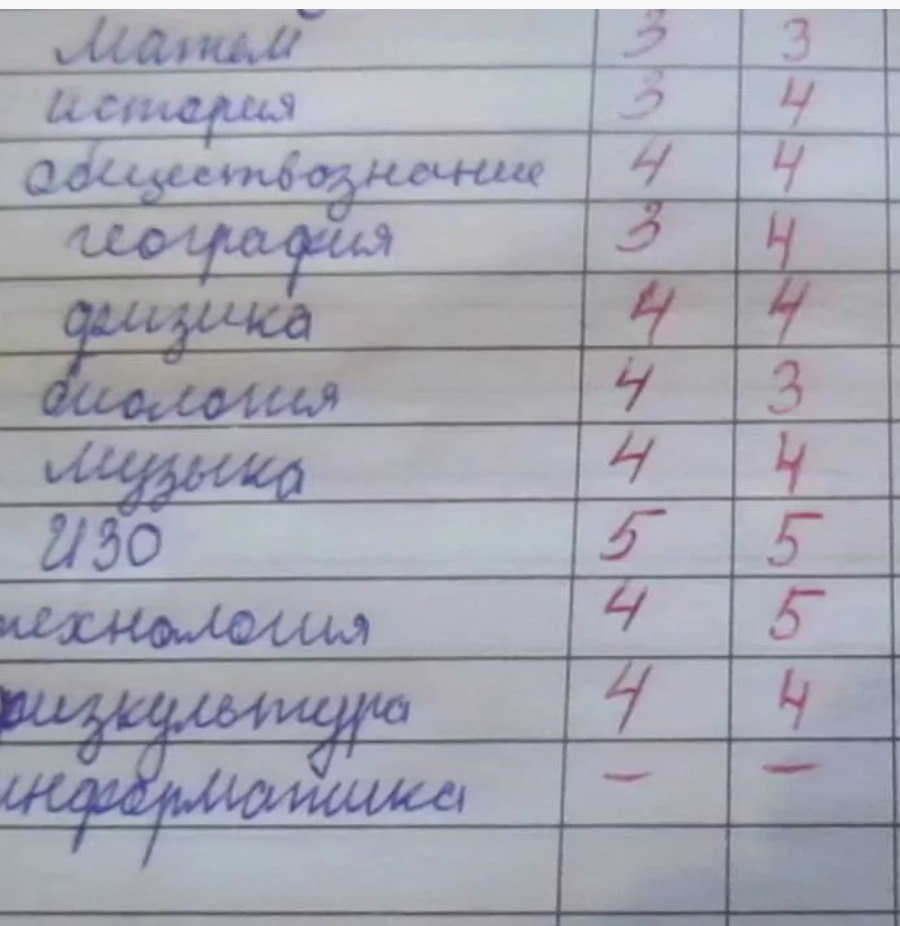 Матем 3 3
история 3 4
обществознание 4 4
география 3 4
физика 4 4
биология 4 3
музыка 4 4
ИЗО 5 5
технология 4 5
физкультура 4 4
информатика – –